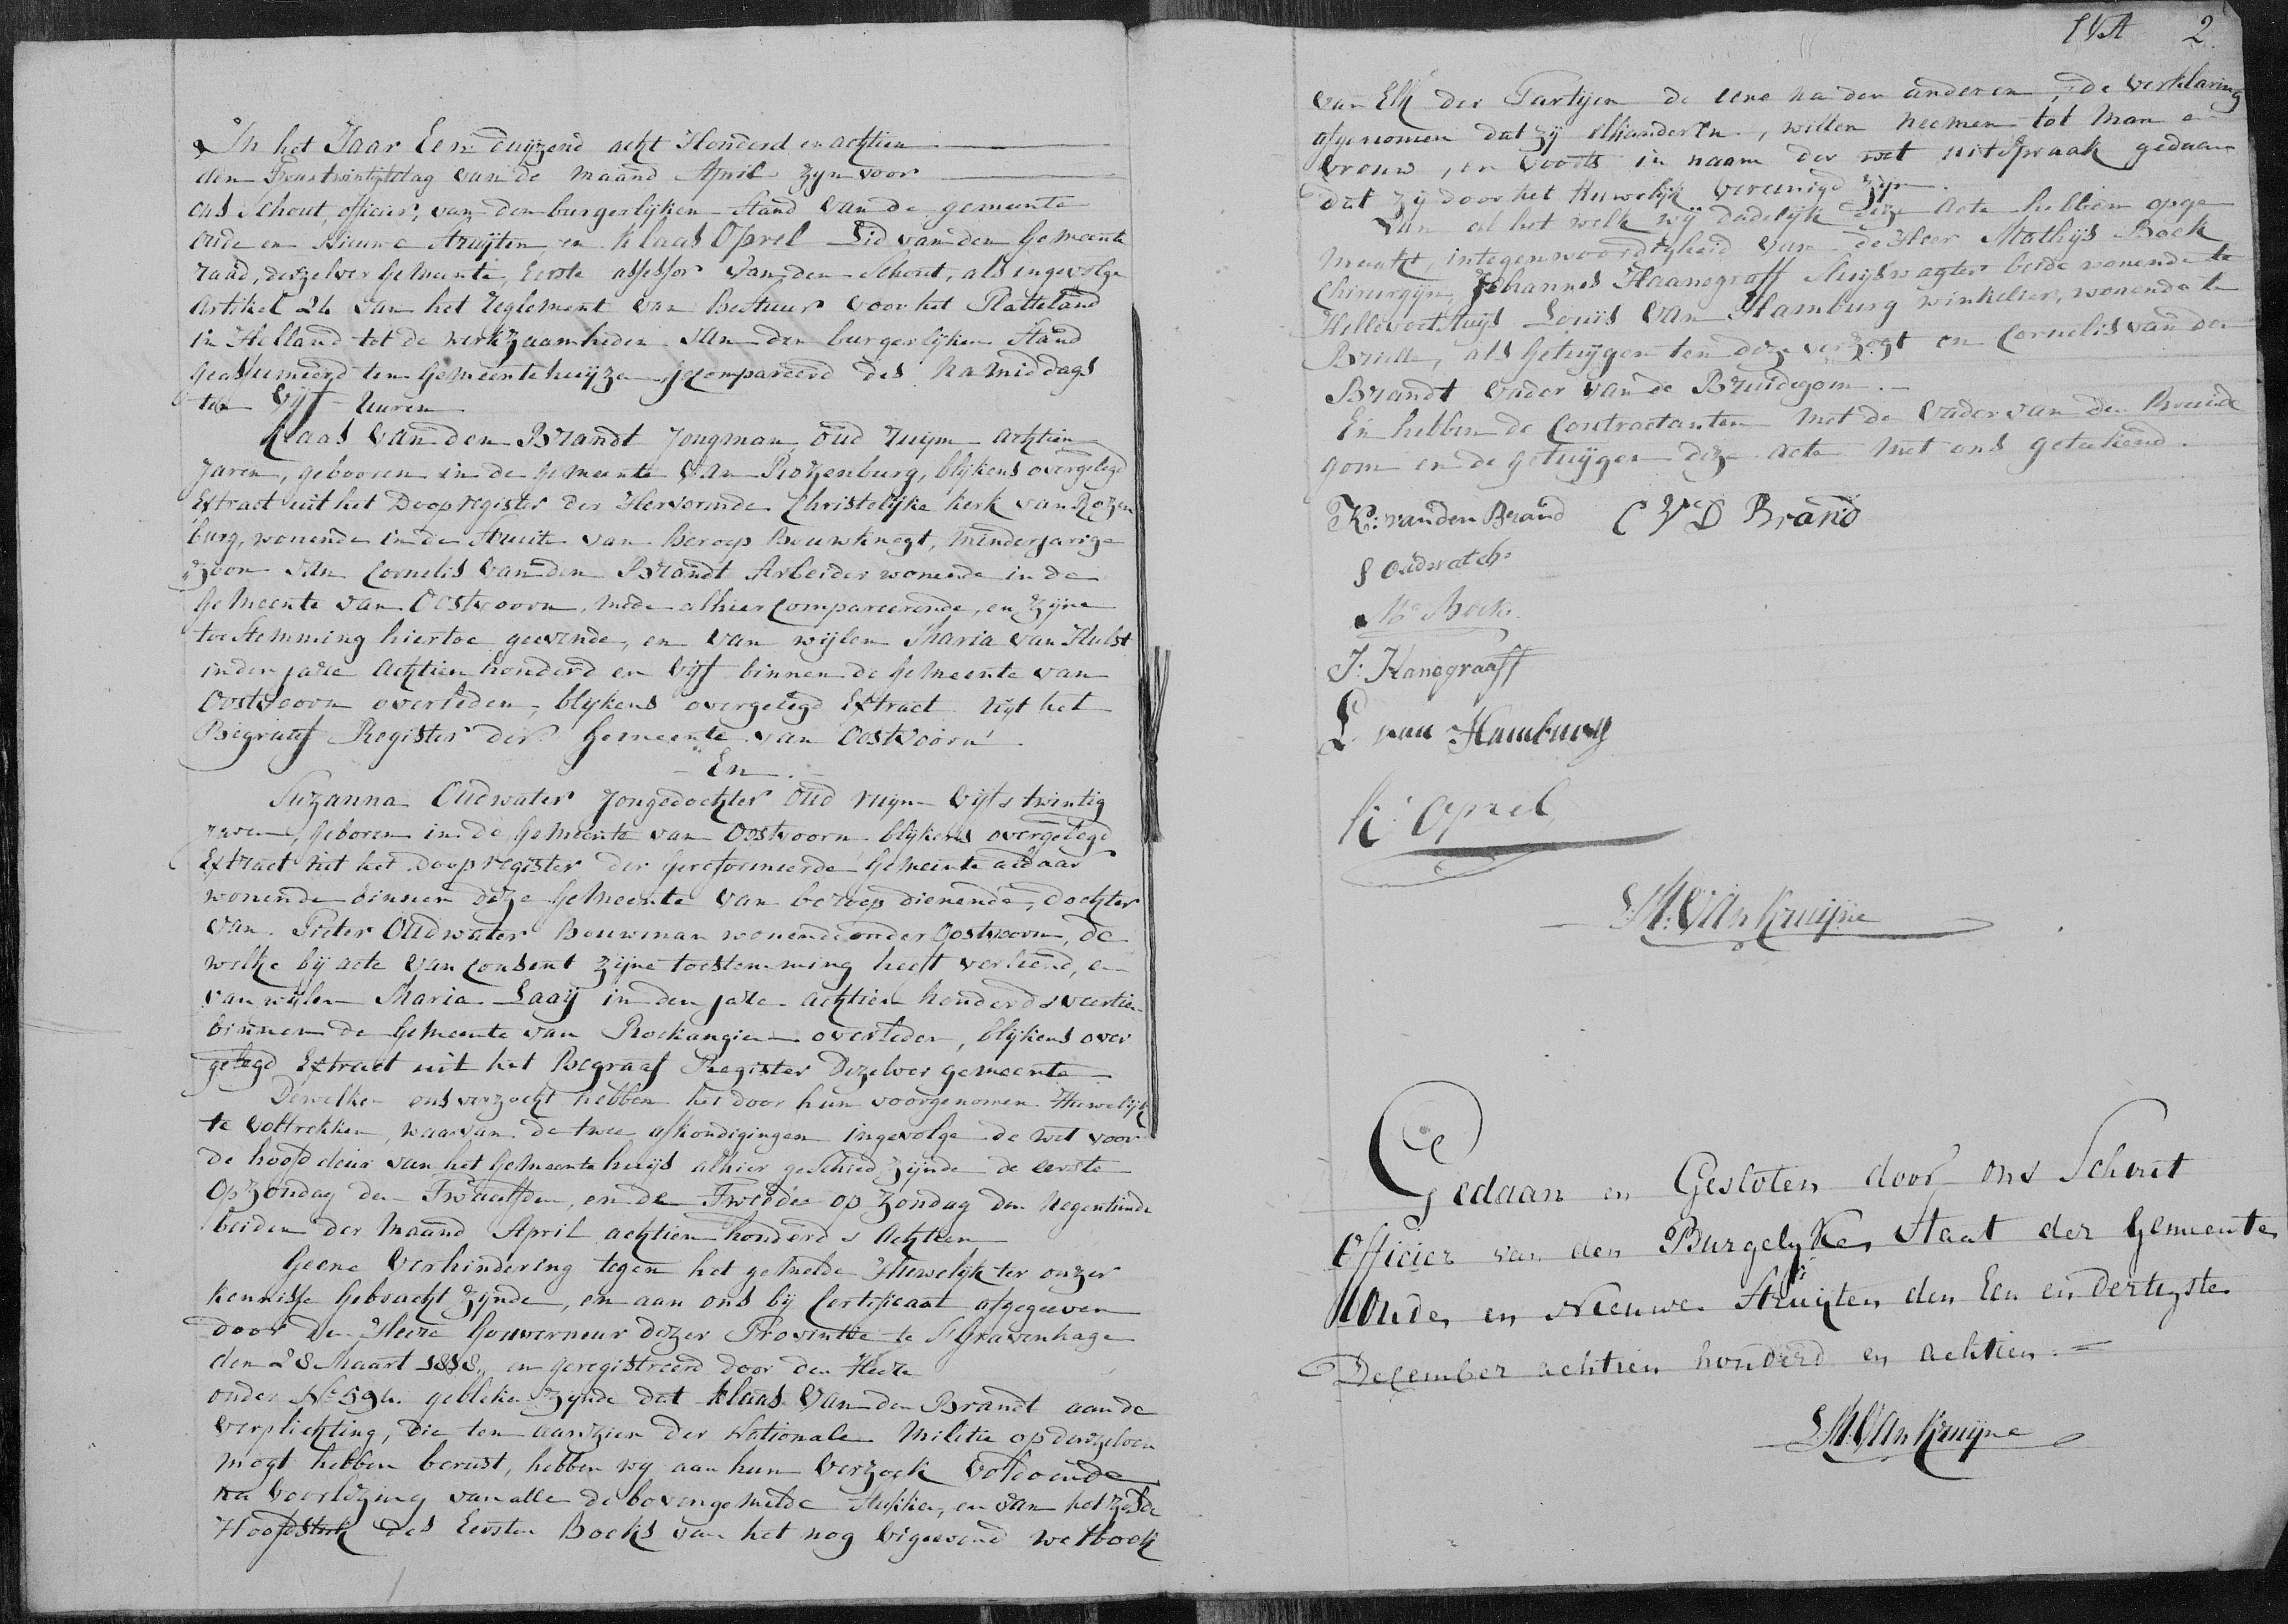 In het Jaar Een duijzend acht Honderd en achtien
den Tweetwintigste dag van de maand April zyn voor
ons Schout, officier, van den burgerlijken Stand van de gemeente
oude en Nieuwe Struijten en Klaas Oprel Lid van den Gemeente
raad, derzelver Gemeente, Eerste assessor van den Schout, als ingevolge
Artikel 24 van het reglement van Bestuur voor het Platteland
in Holland tot de werkzaamheden van den burgerlijken Stand
geassumeerd ten Gemeentehuijze gecompareerd des namiddags
ten Vijf uuren
Klaas van den Brandt Jongman oud ruijm achtien
Jaren, gebooren in de gemeente van Rozenburg, blijkens overgelegd
Extract uit het Doopregister der Hervormde Christelijke kerk van Rozen
burg, wonende in de Struiten van Beroep Bouwknegt, minderjarige
zoon van Cornelis van den Brandt Arbeider wonende in de
gemeente van Oostvoorn, mede alhier compareerende, en zijne
toestemming hiertoe geevende, en van wijlen Maria van Hulst
in den jare achtien honderd en vijf binnen de gemeente van
Oostvoorn overleden, blijkens overgelegd Extract uijt het
Begraaf Register der gemeente van Oostvoorn
En
Suzanna Oudwater Jongedochter oud ruijm vijf & twintig
jaren, geboren in de gemeente van Oostvoorn blijkens overgelegd
Extract uit het doopregister der gereformeerde gemeente aldaar
wonende binnen deze gemeente van beroep dienende, dochter
van Pieter Oudwater Bouwman wonende onder Oostvoorn, de
welke bij acte van consent zijne toestemming heeft verleend, en
van wijlen Maria Laaij in den jare achtien honderd & veertien
binnen de gemeente van Rockangien overleden, blijkens over
gelegd Extract uit het Begraaf Register Dezelver gemeente
Dewelke ons verzocht hebben het door hun voorgenomen Huwelijk
te voltrekken, waarvan de twee afkondigingen ingevolge de wet voor
de hoofd deur van het Gemeente huijs alhier geschied zijnde de eerste
op zondag den Twaalfden, en de Tweede op zondag den Negentiende
beiden der maand April achtien honderd & Achtien
Geene verhindering tegen het gemelde Huwelijk ter onzer
kennisse gebracht zijnde, en aan ons bij Certificaat afgegeeven
door den Heere Gouverneur dezer Provintie te S'Gravenhage
den 28 Maart 1818, en geregistreerd door den Heere
onder No 594. gebleken zynde dat Klaas van den Brandt aan de
verplichting, die ten aanzien der Nationale Militie op denzelven
mogt hebben berust, hebben wy aan hun verzoek voldoende
na voorlezing van alle de bovengemelde stukken, en van het zesde
Hoofdstuk des Eersten Boeks van het nog vigeerend wetboek
2
van Elk der Partijen de eene na den anderen, de verklaring
afgenomen dat zij elkanderen, willen neemen tot man en
vrouw, en voorts in naam der wet uitspraak gedaan
dat zij door het Huwelijk vereenigd zijn.
Van al het welk wij dadelijk deze acte hebben opge
maakt, in tegenwoordigheid van de Heer Mathijs Bock
Chirurgijn, Johannes Haanegraaff sluijswagter beide wonende te
Hellevoetsluijs Louis van Hamburg winkelier, wonende te
Brielle, als Getuijgen ten deze verzogt en Cornelis van den
Brandt vader van de Bruidegom.
En hebben de Contractanten met de vader van den Bruide
gom en de getuijgen deze acte met ons getekend.
K: van den Brand C V D Brand
S oudwater
Ms Bock
J: Hanegraaff
L van Hamburg
K: Oprel
S: M: VAn Kruijne
Gedaan en Gesloten door ons Schout
Officier van den Burgelyke Staat der Gemeente
Oude en Nieuwe Struijten den Een en dertigste
December achtien honderd en achtien. =
S: M: VAn Kruijne